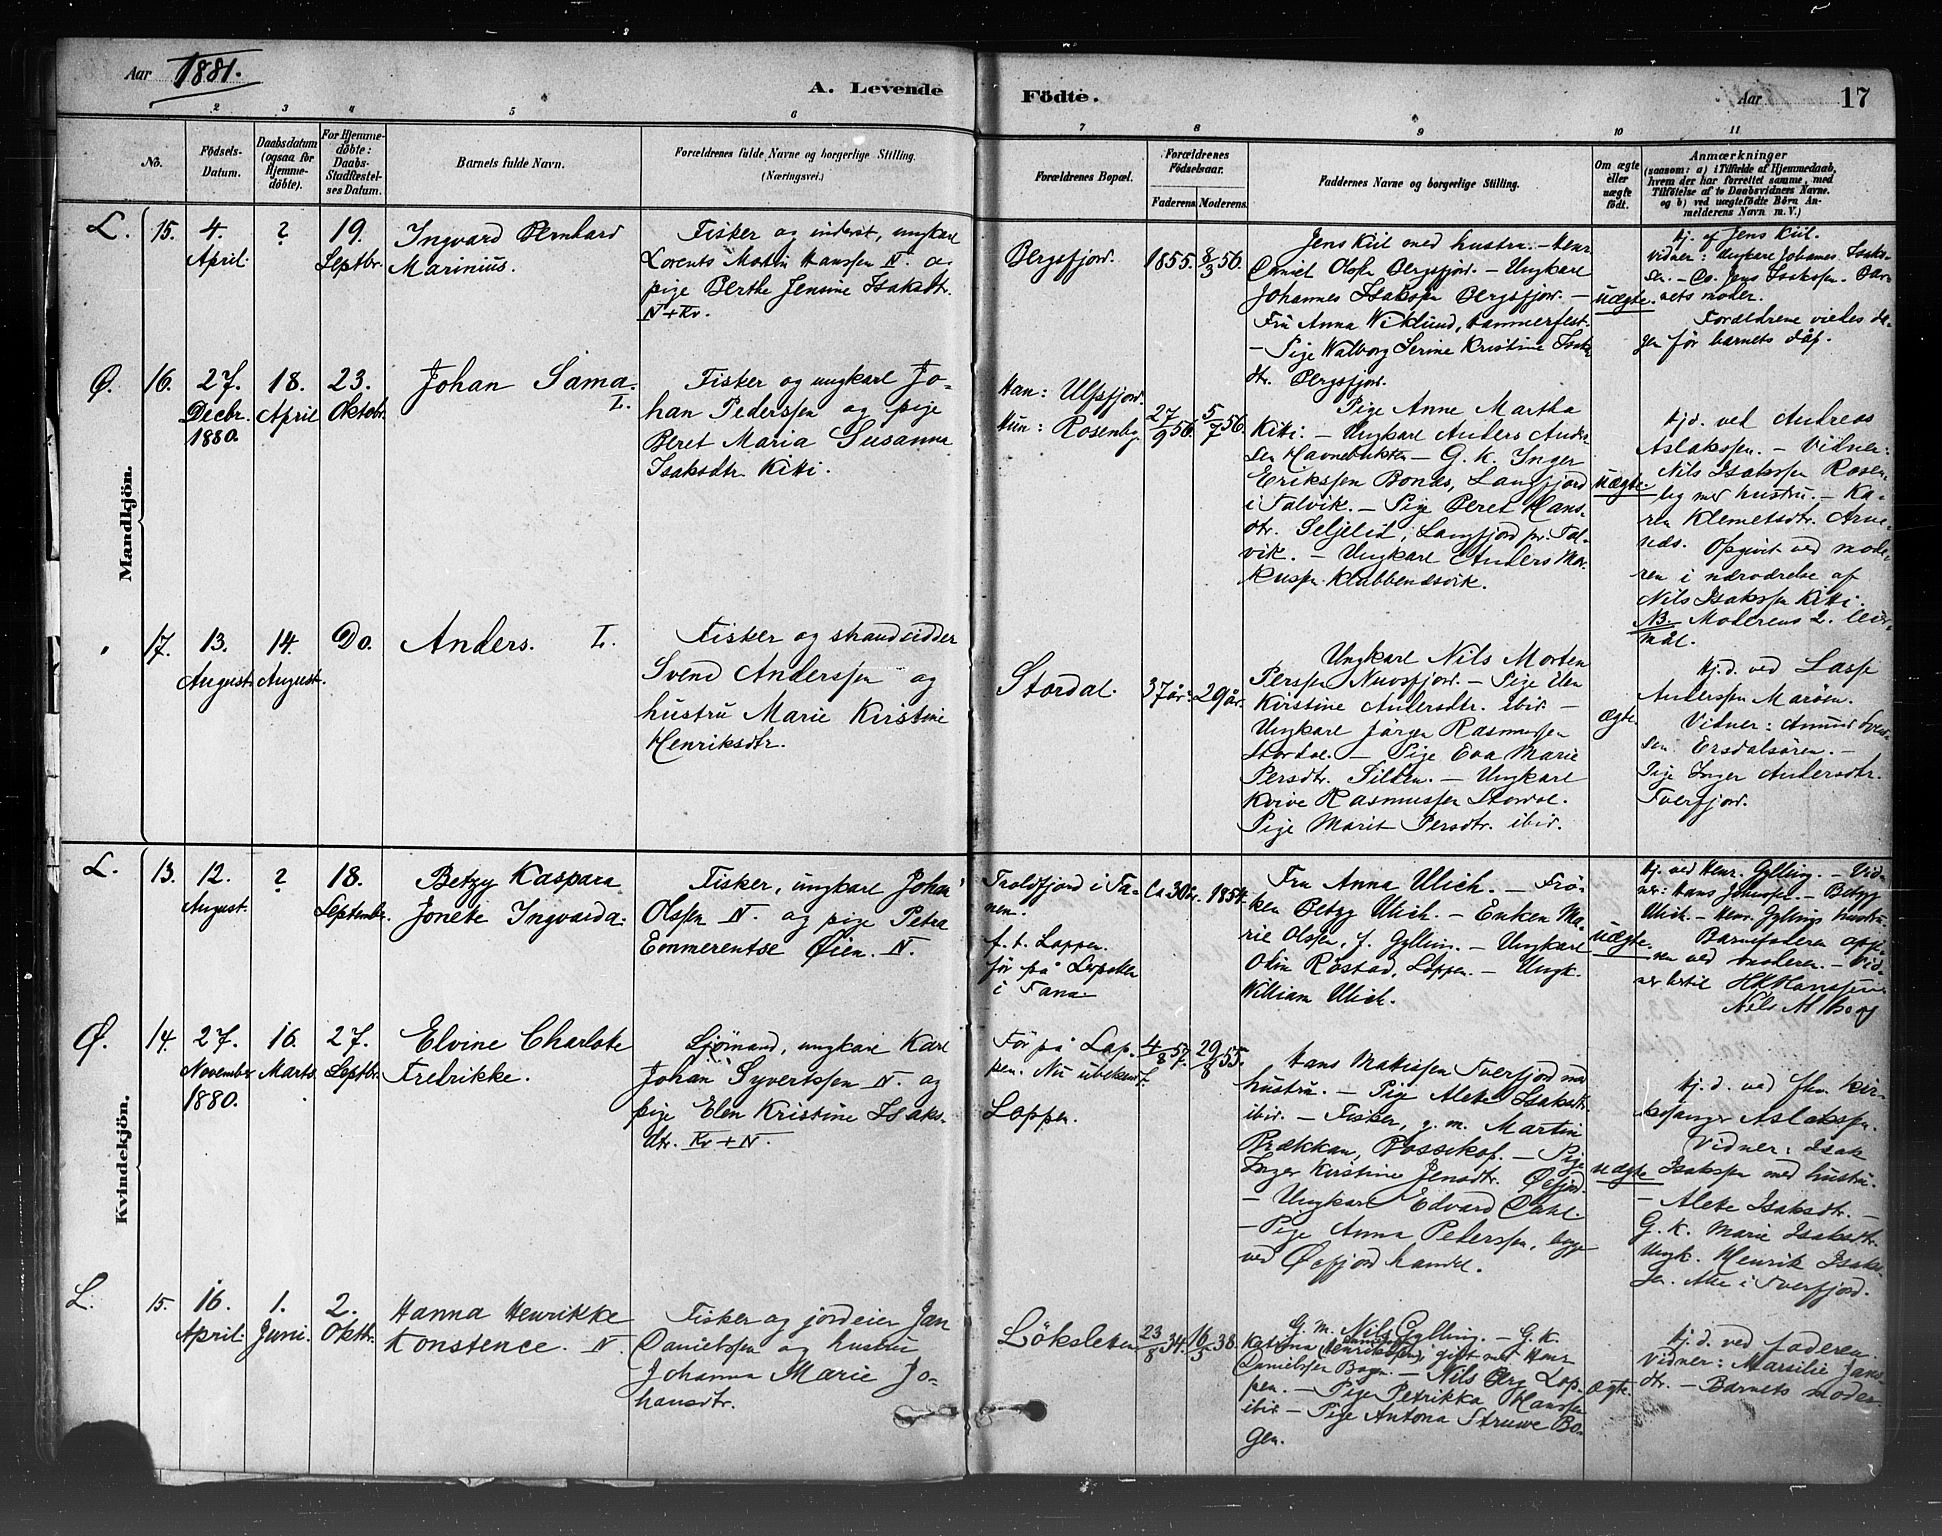 Aar 1881.
A. Levende Födte.
Aar 17
1 2 3 4 5 6 7 8 9 10 11
No.
Födsels-
Datum.
Daabsdatum
(ogsaa for
Hjemme-
döbte).
For Hjemme-
döbte:
Daabs-
Stadfæstel-
ses Datum.
Barnets fulde Navn.
Forældrenes fulde Navne og borgerlige Stilling.
(Næringsvei.)
Forældrenes Bopæl.
Forældrenes
Födselsaar.
Faderens. Moderens.
Faddernes Navne og borgerlige Stilling.
Om ægte
eller
uægte
födt.
Anmærkninger
(saasom: a) i Tilfælde af Hjemmedaab,
hvem der har forrettet samme, med
Tilföielse af to Daabsvidners Navne.
og b) ved uægtefödte Börn An-
melderens Navn m. V.)
Mandkjön.
L. 15. 4. April ? 19. Septbr.
Ingvard Bernhard
Marinius.
Fisker og inderst, ungkarl
Lorents Martin Hanssen N. og
pige Berthe Jensine Isaksdtr.
N + Kv.
Bergsfjord. 1855. 8/3 56.
Jens Kiil med hustru. - Henr.
Daniel Olsen Bergsfjord. - Ungkarl
Johannes Isaksen Bergsfjord. -
Fru Anna Wiklund, Hammerfest.
- Pige Walborg Serine Kristine Isaks
dtr. Bergsfjord.
uægte.
Hj. af Jens Kiil.
Vidner: Ungkarl Johannes Isak-
sen. - Do. Jens Isaksen. Bar-
nets moder.
Forældrene viedes da-
gen før barnets dåp.
Ø. 16. 27. Decbr. 1880. 18. April 23. Oktobr.
Johan Sama.
L.
Fisker og ungkarl Jo-
han Pederssen og pige
Beret Maria Susanna
Isaksdtr Kitti.
Han: Ulfsfjord.
Hun: Rosenbg.
27/9 56. 5/7 56.
Pige Anne Martha
Kitti: - Ungkarl Anders Ander
sen Havnebukten - G. K. Inger
Erikssen Bonas, Langfjord
i Talvik. - Pige Beret Hans-
dtr. Seljelid, Langfjord pr. Tal-
vik. - Ungkarl Anders Mar-
kussen Klubbenæsvik.
uægte.
Hjd. ved Andreas
Aslakssen. - Vidner:
Nils Isakssen Rosen-
bg med hustru. - Ka-
ren Klemetsdtr. Arne-
næs. Opgivet ved mode-
ren i nærværelse af
Nils Isakssen Kitti.
NB. Moderens 2. leier-
mål.
" 17. 13. August. 14. August. Do.
Anders. L.
Fisker og strandsidder
Svend Anderssen og
hustru Marie Kirstine
Henriksdtr.
Stordal. 37 år. 29 år.
Ungkarl Nils Morten
Perssen Nuvsfjord. - Pige Elen
Kirstine Andersdtr. ibid -
Ungkarl Jørgen Rasmussen
Stordal. - Pige Eva Marie
Persdtr. Silden. - Ungkarl
Kvive Rasmussen Stordal.
Pige Marit Persdtr. ibid.
ægte.
Hj.d. ved Lasse
Anderssen Marøen.
Vidner: Amund Svend-
sen Ersdalsøren. -
Pige Inger Andersdtr.
Tverfjord.
Kvindekjön.
L. 13. 12. August. ? 18. Septembr.
Betzy Kaspara
Jonette Ingvarda.
Fisker, ungkarl Johan
Olssen N. og pige Petra
Emmerentse Øien. N.
Troldfjord i Ta-
nen.
f. t. Loppen.
før på Lerpollen
i Tana
Ca 30 år. 1854.
Fru Anna Ulich. - Frø-
ken Betzy Ulich. - Enken Ma-
rie Olssen, f. Gylling. - Ungkarl
Olin Røstad, Loppen. - Ungk.
William Ulich.
uægte.
Hj. ved Henr. Gylling. - Vid-
ner: Hans Johnsen. - Betzy
Ulich. - Henr. Gyllings hustru.
Barnefaderen opgi-
ven ved moderen. - Vid-
ner hertil HK Hanssen
Nils M Berg
Ø. 14. 27. November 1880. 16. Marts. 27. Septbr.
Elvine Charlotte
Fredrikke.
Sjømand, ungkarl Karl
Johan Syvertssen N. og
pige Elen Kristine Isaks-
dtr. Kv + N.
Før på Lop-
pen. Nu ubekendt.
Loppen.
4/8 57. 29/8 55.
Hans Matissen Tverfjord med
hustru. - Pige Alete Isaksdtr.
ibid. - Fisker, g. m. Martin
Brækkan, Bossekop. - Pige
Inger Kirstine Jensdtr. Øxfjord.
- Ungkarl Edvard Dahl.
- Pige Anna Pederssen, begge
ved Øxfjord handel.
uægte
Hj. d. ved fhv. kir-
kesanger Aslakssen.
Vidner: Isak
Isakssen med hustru.
- Alete Isaksdtr. -
G. K. Marie Isaksdtr.
Ungk. Henrik Isaks-
sen. Alle i Tverfjord.
L. 15. 16. April. 1. Juni. 2. Oktbr.
Hanna Henrikke
Konstence. N.
Fisker og jordeier Jan
Danielssen og hustru
Johanna Marie Jo-
hansdtr.
Løksletten 23/8 34. 16/5 38.
G. m. Nils Gylling. - G. K.
Katrina (Henrikssen) gift med Henr
Danielssen Bogn. - Nils Berg Lop-
pen. - Pige Petrikka Hanssen
ibid - Pige Antona Struwe Bo-
gen.
ægte.
Hj. d. ved faderen.
Vidner: Marsilie Jans-
dtr. - Barnets moder.